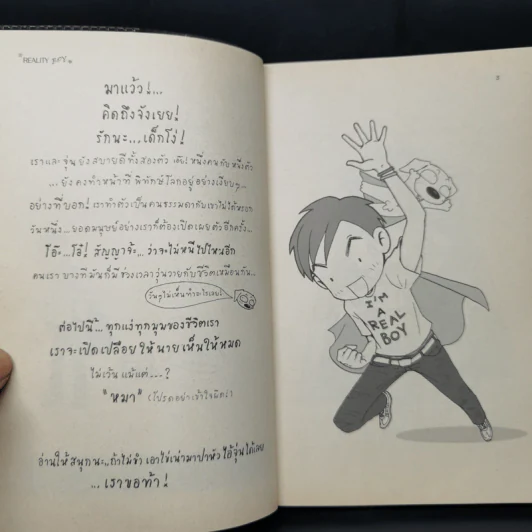 REALITY
มาแว้ว!...
คิดถึงจังเยย!
รักนะ...เด็กโง่!
เราและจุ่น ยังสบายดีทั้งสองตัว เอ๊ย! หนึ่งคนกับหนึ่งตัว
...ยังคงทำหน้าที่ พิทักษ์โลกอยู่อย่างเงียบๆ...
อย่างที่บอก! เราทำตัวเป็นคนธรรมดากับเขาไปได้หรอก
วันหนึ่ง...ยอดมนุษย์อย่างเราก็ต้องเปิดเผยตัวอีกครั้ง...
โอ๊ะ...โอ๋! สัญญาจ้ะ...ว่าจะไม่หนีไปไหนอีก
คนเรา บางทีมันก็มีช่วงเวลาวุ่นวายกับชีวิตเหมือนกัน...
วันๆไม่เห็นทำอะไรเลย!
ต่อไปนี้... ทุกแง่ทุกมุมของชีวิตเรา
เราจะเปิดเปลือย ให้นายเห็นให้หมด
ไม่เว้นแม้แต่....?
"หมา" (โปรดอย่าเข้าใจผิด)
อ่านให้สนุกนะ..ถ้าไม่ขำ เอาไข่เน่ามาปาหัวไอ้จุ่นได้เลย
...เราขอท้า!
I'M
A
REAL
BOY